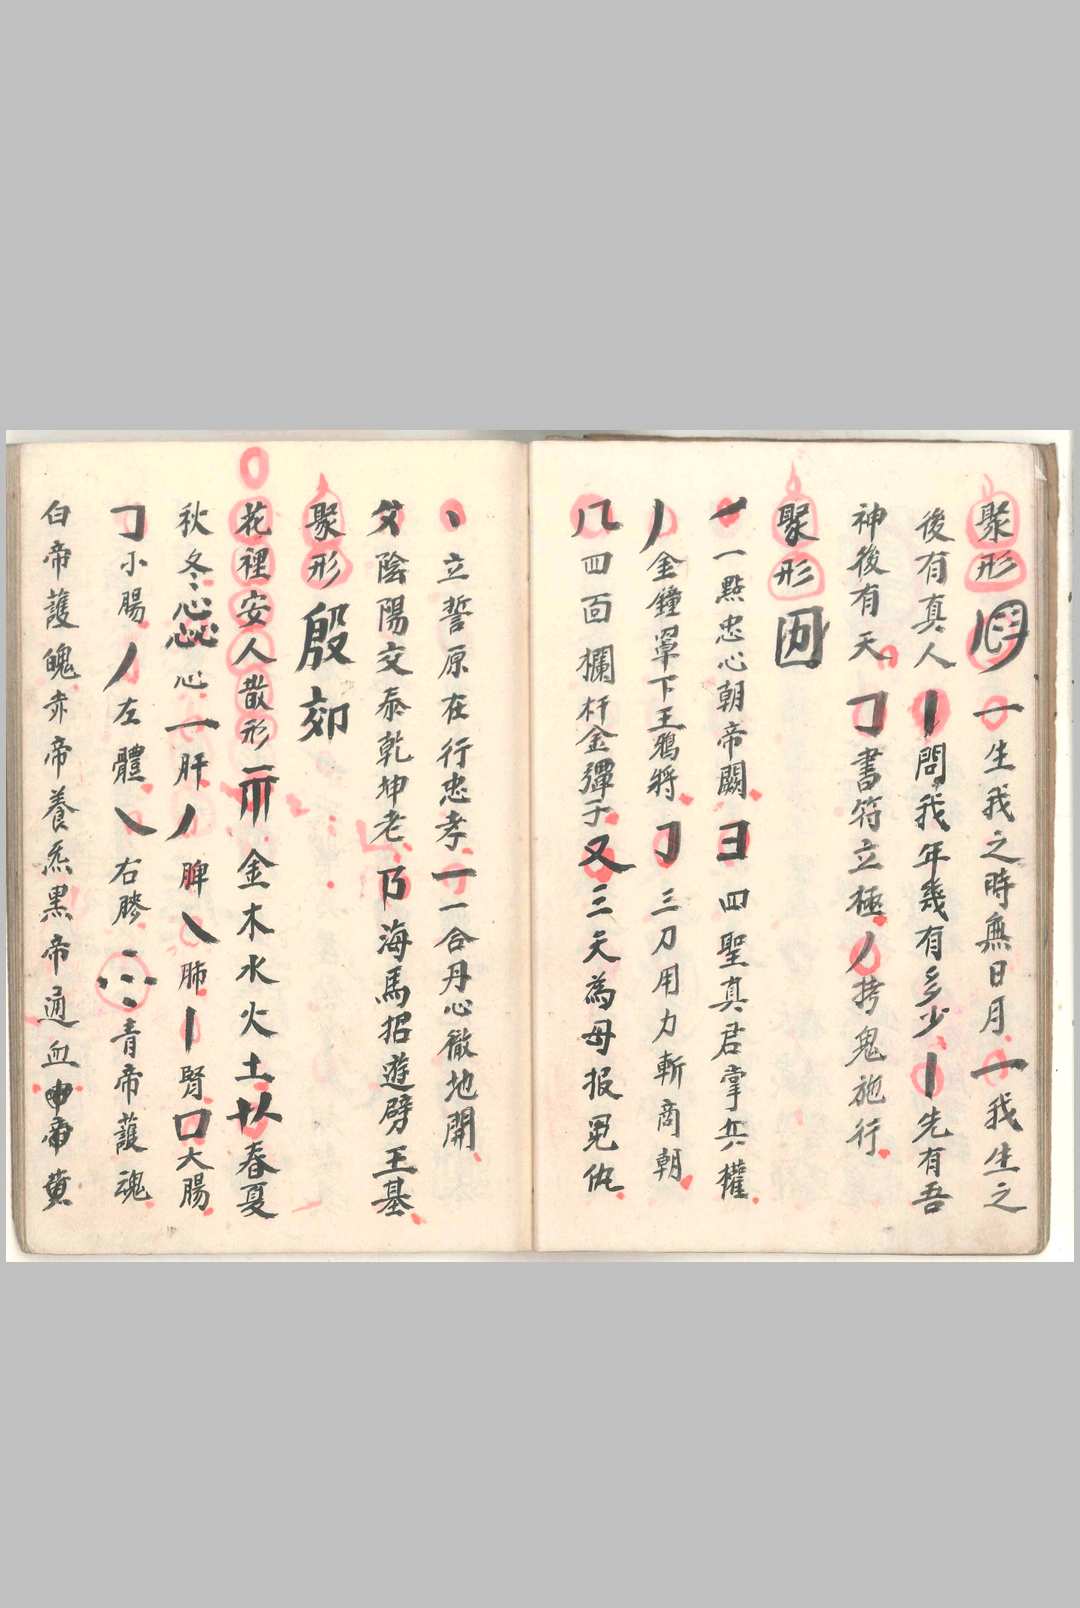 聚形 一生我之時無日月一我生之
後有真人丨問我年幾有多少丨先有吾
神後有天㇆書符立極丿拷鬼施行
聚形
一點忠心朝帝闕彐四聖真君掌兵權
丿金鐘罩下王鴉將㇆三刀用力斬商朝
四面欄杆金彈子又三天為母报冤仇
丶立誓原在行忠孝一一合丹心徹地開
陰陽交泰乾坤老乃海馬招遊劈王基
聚形殷郊
花裡安人散形 金木水火土 春夏
秋冬 心一肝丿脾㇏肺丨腎口大腸
㇆小腸丿左體㇏右膝 青帝護魂
白帝護魄赤帝養炁黑帝通血 帝黄